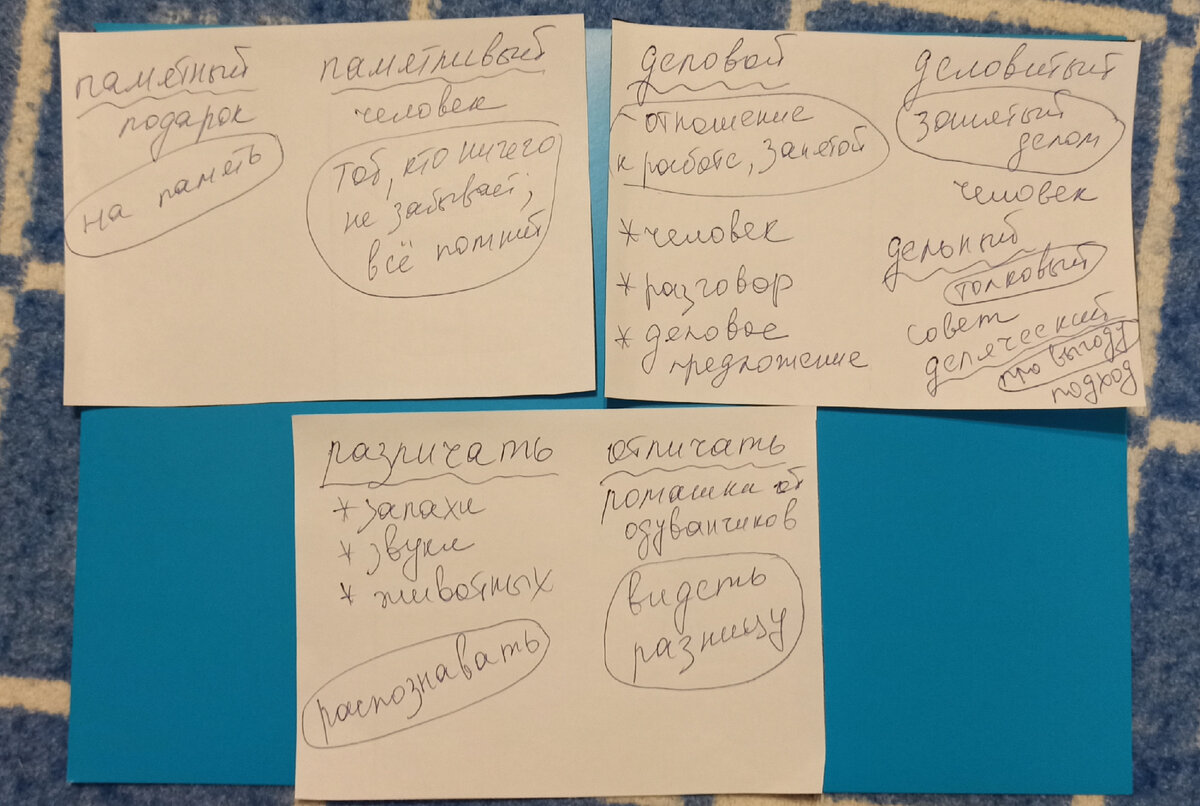 памятный
подарок
на память
памятливый
человек
тот, кто ничего
не забывает,
всё помнит
деловой
отношение
к работе, занятой
* человек
* разговор
* деловое
предложение
деловитый
занятый
делом
человек
дельный
толковый
совет
деляческий
про выгоду
подход
различать
* запахи
* звуки
* животных
распознавать
отличать
ромашки от
одуванчиков
видеть
разницу